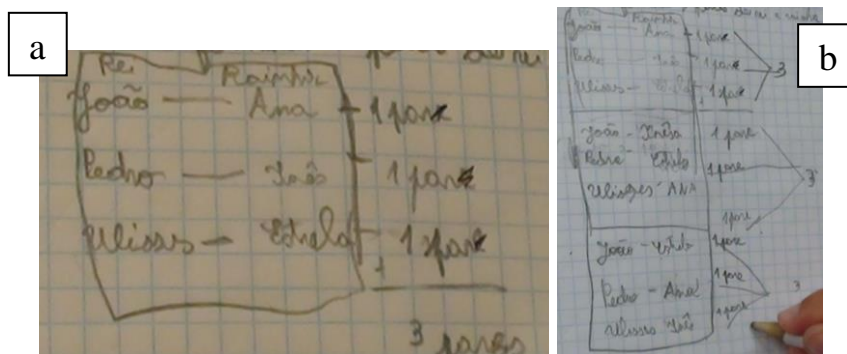 a
Rei Rainha
João — Ana – 1 par
Pedro — Inês – 1 par
Ulisses – Estrela – 1 par
+
3 pares
b
João — Ana – 1 par
Pedro — Inês – 1 par
3
Ulisses – Estrela – 1 par
João – Inês 1 par
Pedro – Estrela 1 par
3
Ulisses ANA
1 par
João – Estrela 1 par
Pedro – Ana 1 par
3
Ulisses Inês 1 par